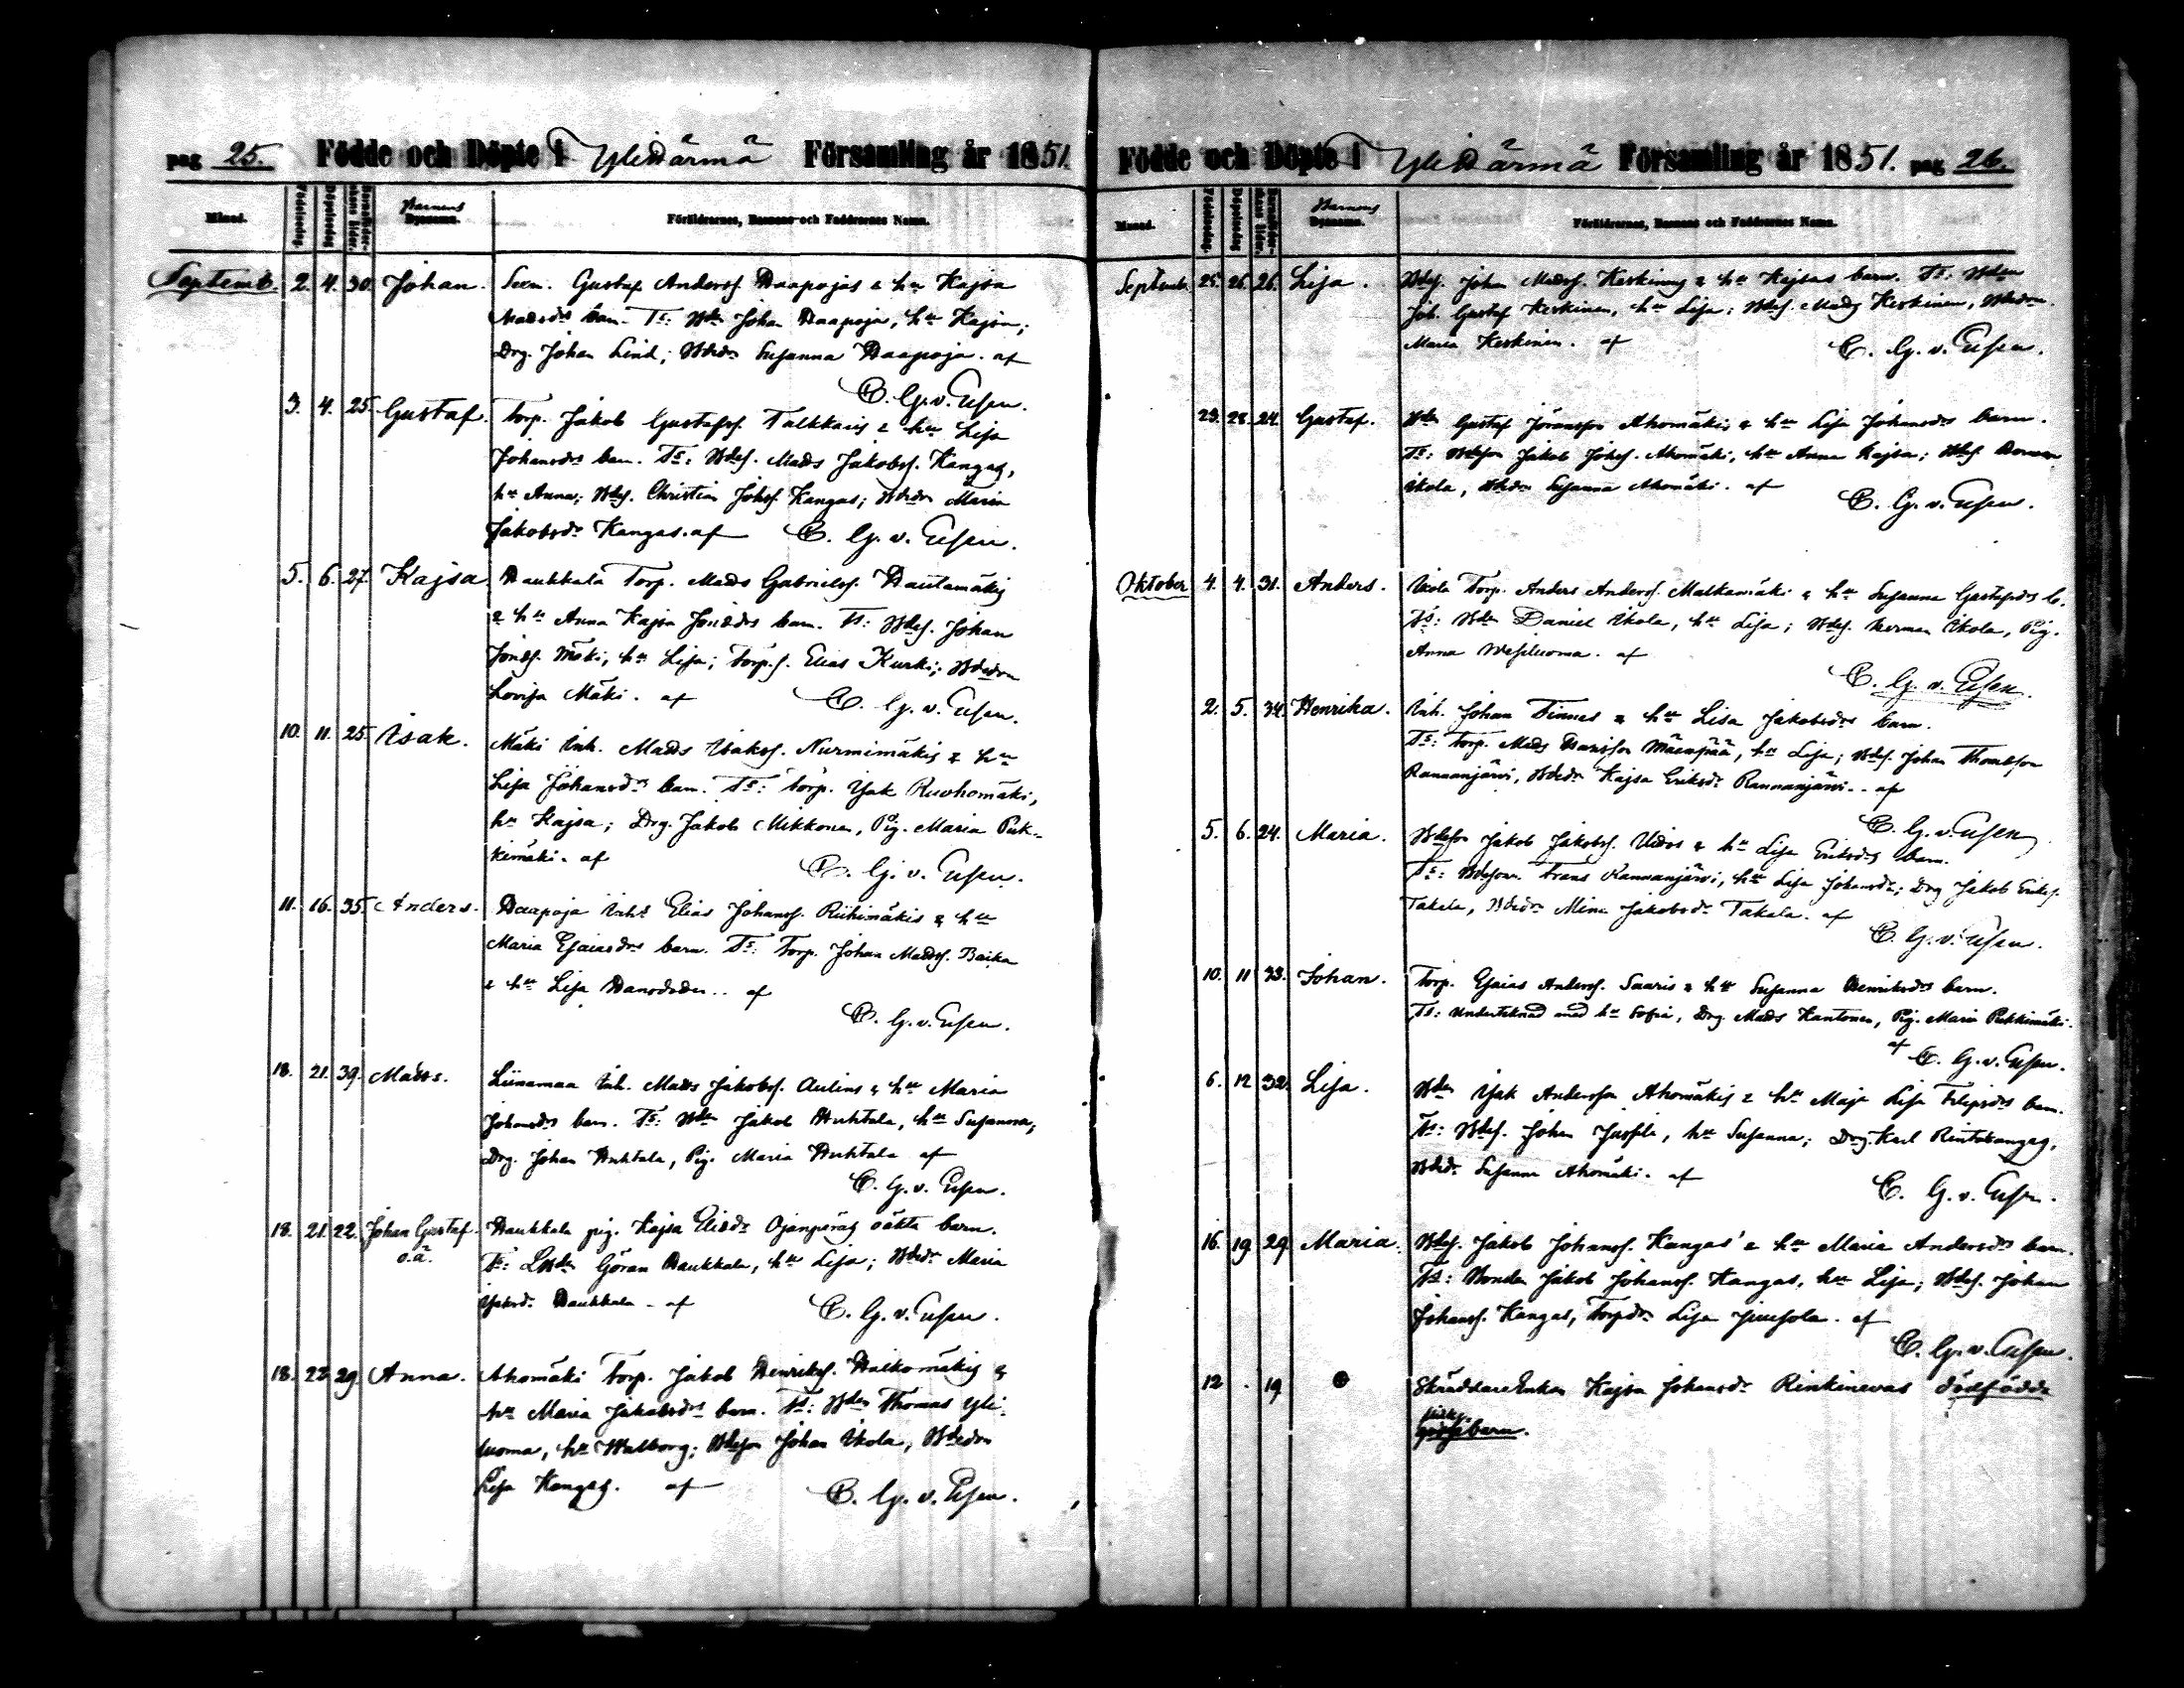 pag 25. Födde och Döpte i YliHärmä Församling år 1851.
Månad. Födelsedag. Döpelsedag Barnens Föräldrarnes, Barnens och Faddrarnes Namn.
Septemb. 2. 4. 30. Johan. Gustaf Anderss. Haapojas & hu Kajsa
Madsdrs barn. Ts: Bdn Johan Haapoja, hu Kajsa;
Drg. Johan Lind; Bdedr Susanna Haapoja. af
C. G. v. Essen.
3. 4. 25. Gustaf. Torp. Jakob Gustafss. Talkkaris & hu Lisa
Johansdrs barn. Ts: Bdes. Mads Jakobss. Kangas,
hu Anna; Bdes. Christian Johss. Kangas; Bdedr Maria
Jakobsdr Kangas. af C. G. v. Essen.
5. 6. 27. Kajsa Haukkala Torp. Mads Gabrielss. Hautamäkis
& hu Anna Kajsa barn. Ts: Bdes. Johan
Mäki, hu Lisa; Torp.s. Elias Kurki; Bdedr
Lovisa Mäki. af C. G. v. Essen.
10. 11. 25. Isak. Mäki Inh. Mads Isakss. Nurmimäkis & hu
Lisa Johansdrs barn. Ts: Torp. Isak Ruohomäki,
hu Kajsa; Drg. Jakob Mikkonen, Pig. Maria Puk-
kimäki. af C. G. v. Essen.
11. 16. 35. Anders. Haapoja Inhs Elias Johanss. Riihimäkis & hu
Maria Esaiasdrs barn. Ts: Torp. Johan Madss.
& hu Lisa Hansdoter. af
C. G. v. Essen.
18. 21. 39. Mads. Liinamaa Inh. Mads Jakobss. Aulins & hu Maria
Johansdrs barn. Ts: Bdn Jakob Huhtala, hu Susanna;
Drg. Johan Huhtala, Pig. Maria Huhtala af
C. G. v. Essen.
18. 21. 22. Johan Gustaf. Haukkala pig. Kajsa Eliedr Ojanperäs oäkta barn.
o.ä. Ts: Göran Haukkala, hu Lisa; Bdedr Maria
Isaksdr Haukkala. af C. G. v. Essen.
18. 22. 29. Anna. Ahomäki Torp. Jakob Henrikss. Halkomäkis &
hu Maria Jakobsdrs barn. Ts: Bdn Thomas Yli-
luoma, hu Walborg; Bdeson Johan Ikola, Bdedr
Lisa Kangas. af C. G. v. Essen.
Födde och Döpte i YliHärmä Församling år 1851. pag 26.
Månad. Födelsedag. Döpelsedag Barnens Föräldrarnes, Barnens och Faddrarnes Namn.
Septemb. 25. 26. 26. Lisa. Bdes. Johan Madss. Keskinens & hu Kajsas barn. Ts: Bdn
Joh. Gustaf Keskinen, hu Lisa; Bdes. Mads Keskinen, Bdedr
Maria Keskinen. af C. G. v. Essen.
23. 28. 24. Gustaf. Bdn Gustaf Ahomäkis & hu Lisa Johansdrs barn.
Ts: Bdeson Jakob Johss. Ahomäki, hu Anna Kajsa; Bdes. Herman
Ikola, Bdedr Susanna Ahomäki. af C. G. v. Essen.
Oktober 4. 4. 31. Anders. Ikola Torp. Anders Anderss. Malkamäki & hu Susanna Gustafsdrs b.
Ts: Bdn Daniel Ikola, hu Lisa; Bdes. Herman Ikola, Pig.
Anna Wesiluoma. af
C. G. v. Essen.
2. 5. 34. Henrika. Inh. Johan Finnes & hu Lisa Jakobsdrs barn.
Ts: Torp. Mads Hansson Mäenpää, hu Lisa; Bdes. Johan Thomasson
Rannanjärvi, Bdedr Kajsa Eriksdr Rannanjärvi. af
C. G. v. Essen
5. 6. 24. Maria. Bdeson Jakob Jakobss. & hu Lisa Eriksdrs barn.
Ts: Bdeson Frans Rannanjärvi, hu Lisa Johansdr; Drg Jakob Erikss.
Takala, Bdedr Mina Jakobsdr Takala. af
C. G. v. Essen.
10. 11 33. Johan. Torp. Esaias Anderss. Saaris & hu Susanna Henriksdrs barn.
Ts: Undertecknad med hu Sofia, Drg Mads Kantonen, Pig. Maria Pukkimäki.
af C. G. v. Essen.
6. 12 32. Lisa. Bdn Isak Andersson Ahomäkis & hu Maja Lisa Filipsdrs barn.
Ts: Bdes. Johan Jussila, hu Susanna; Drg. Karl Rintakangas,
Bdedr Susanna Ahomäki. af C. G. v. Essen.
16. 19 29 Maria. Bdes. Jakob Johanss. Kangas' & hu Maria Andersdrs barn.
Ts: Bonden Jakob Johanss. Kangas, hu Lisa; Bdes. Johan
Johanss. Kangas, Torpdr Lisa Juusola. af
C. G. v. Essen.
12 . 19 Skräddare Enkan Kajsa Johansdr Rinkinevas dödfödda
barn.